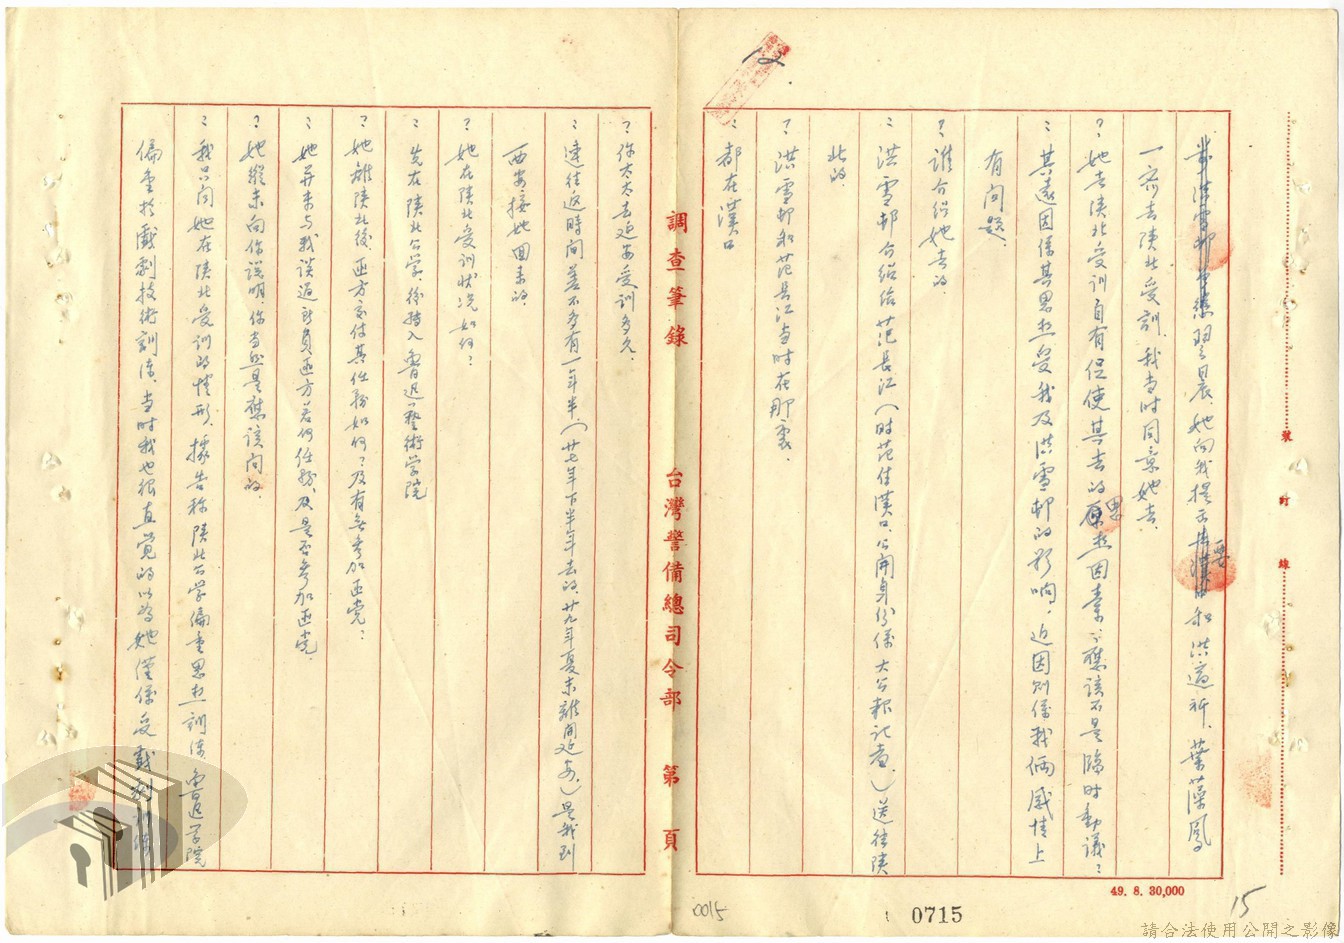 12
翌晨她向我提示要去漢口和洪適祈、葉藻鳳
一齊去陝北受訓，我當時同意她去。
？她去陝北受訓自有促使其去的思想因素，應該不是臨時動議？
：其遠因係其思想受我及洪雪邨的影响，近因則係我倆感情上
有问題
？誰介紹她去的。
：洪雪邨介紹給范長江（时范住漢口，公開身份係大公報記者。）送往陝
北的。
？洪雪邨和范長江当时在那裏。
：都在漢口
調查筆錄 台灣警備總司令部 第 頁
？你太太去延安受訓多久。
：連往返時间差不多有一年半，（廿七年下半年去的，廿九年夏末離開延安。）是我到
西安接她回來的。
？她在陝北受訓状况如何？
：先在陝北公学，後轉入魯迅藝術学院
？她離陝北後，匪方交付其任務如何？及有無参加匪党？
：她并未与我談過所負匪方若何任務，及是否參加匪党。
？她縱未向你說明，你当然是應該问的。
：我只问她在陝北受訓的情形，據告称陝北公学偏重思想訓練，魯迅学院
偏重於戲劇技術訓練，当时我也很直覺的以為她僅係受戲劇訓練
裝 訂 線
49. 8. 30,000
0015
0715
15
請合法使用公開之影像